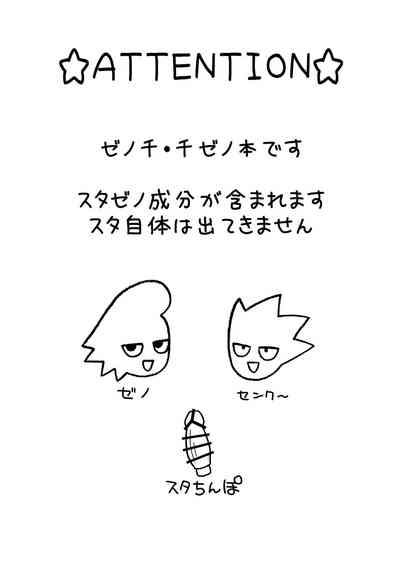 ☆ATTENTION☆
ゼノ千・千ゼノ本です
スタゼノ成分が含まれます
スタ自体は出てきません
ゼノ
センク〜
スタちんぽ